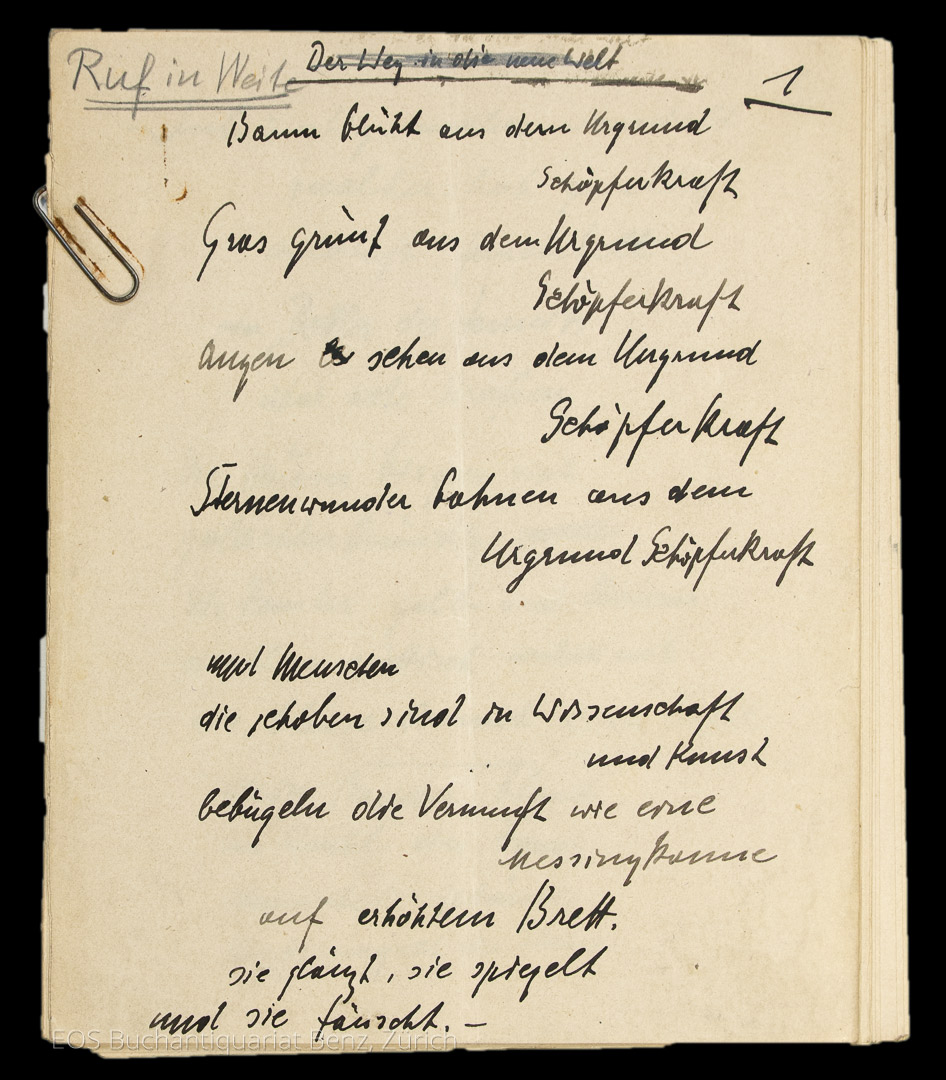 Ruf in Weite
Der Weg in die neue Welt
1
Baum blüht aus dem Urgrund
Schöpferkraft
Gras grünt aus dem Urgrund
Schöpferkraft
Augen sehen aus dem Urgrund
Schöpferkraft
Sternenwunder bahnen aus dem
Urgrund Schöpferkraft
und Menschen
die gehoben sind in Wissenschaft
und Kunst
bebügeln die Vernunft wie eine
Messingkanne
auf erhöhtem Brett.
sie glänzt, sie spiegelt
und sie täuscht. –
EOS Buchantiquariat Benz, Zürich